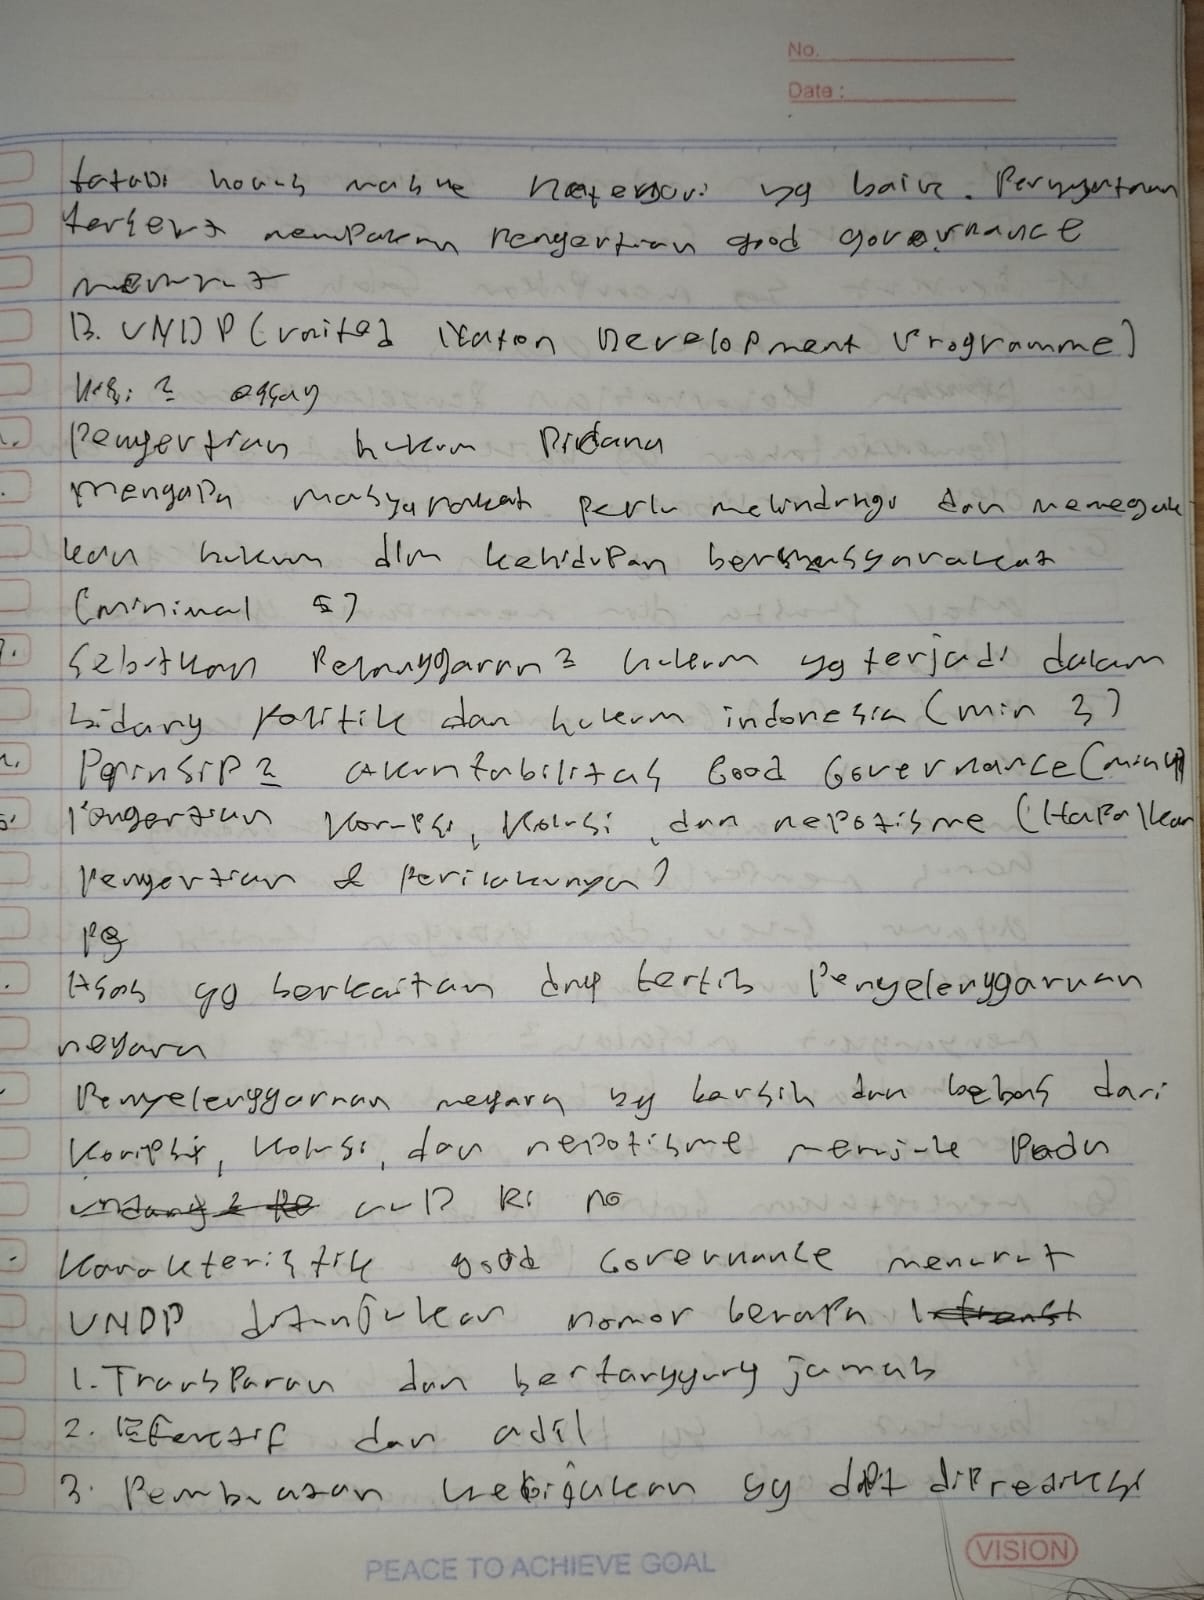 No.
Date :
harus masuk kategori yg baik. Pernyataan
tersebut merupakan Pengertian good governance
menurut
B. UNDP (United Nation Development Programme)
essay
Pengertian hukum Pidana
mengapa masyarakat perlu melindungi dan menegak
kan hukum dlm kehidupan bermasyarakat
(minimal 5)
Sebutkan Pelanggaran2 hukum yg terjadi dalam
bidang Politik dan hukum indonesia (min 3)
Prinsip2 Akuntabilitas Good Governance (min 4)
Pengertian Korupsi, Kolusi, dan nepotisme (Hapalkan
Pengertian & Perilakunya)
PG
Asas yg berkaitan dng tertib Penyelenggaraan
negara
Penyelenggaraan negara yg bersih dan bebas dari
Korupsi, Kolusi, dan nepotisme merujuk Pada
RI no
Karakteristik good Governance menurut
UNDP ditunjukan nomor berapa
1. Transparan dan bertanggung jawab
2. Efektif dan adil
3. Pembuatan kebijakan yg dpt diprediksi
PEACE TO ACHIEVE GOAL
VISION